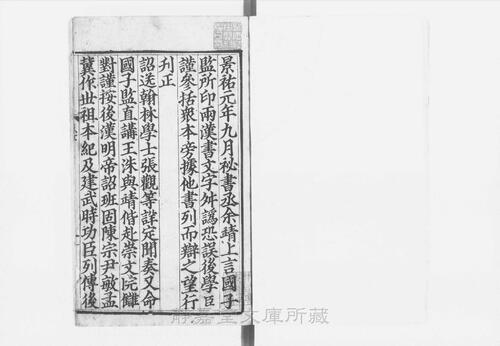 景祐元年九月秘書丞余靖上言國子
監所印兩漢書文字舛譌恐誤後學臣
謹參括衆本旁據他書列而辯之望行
刋正
詔送翰林學士張觀等詳定聞奏又命
國子監直講王洙與靖偕赴崇文院讎
對謹按後漢明帝詔班固陳宗尹敏孟
冀作世祖本紀及建武時功臣列傳後
靜嘉堂文庫所藏